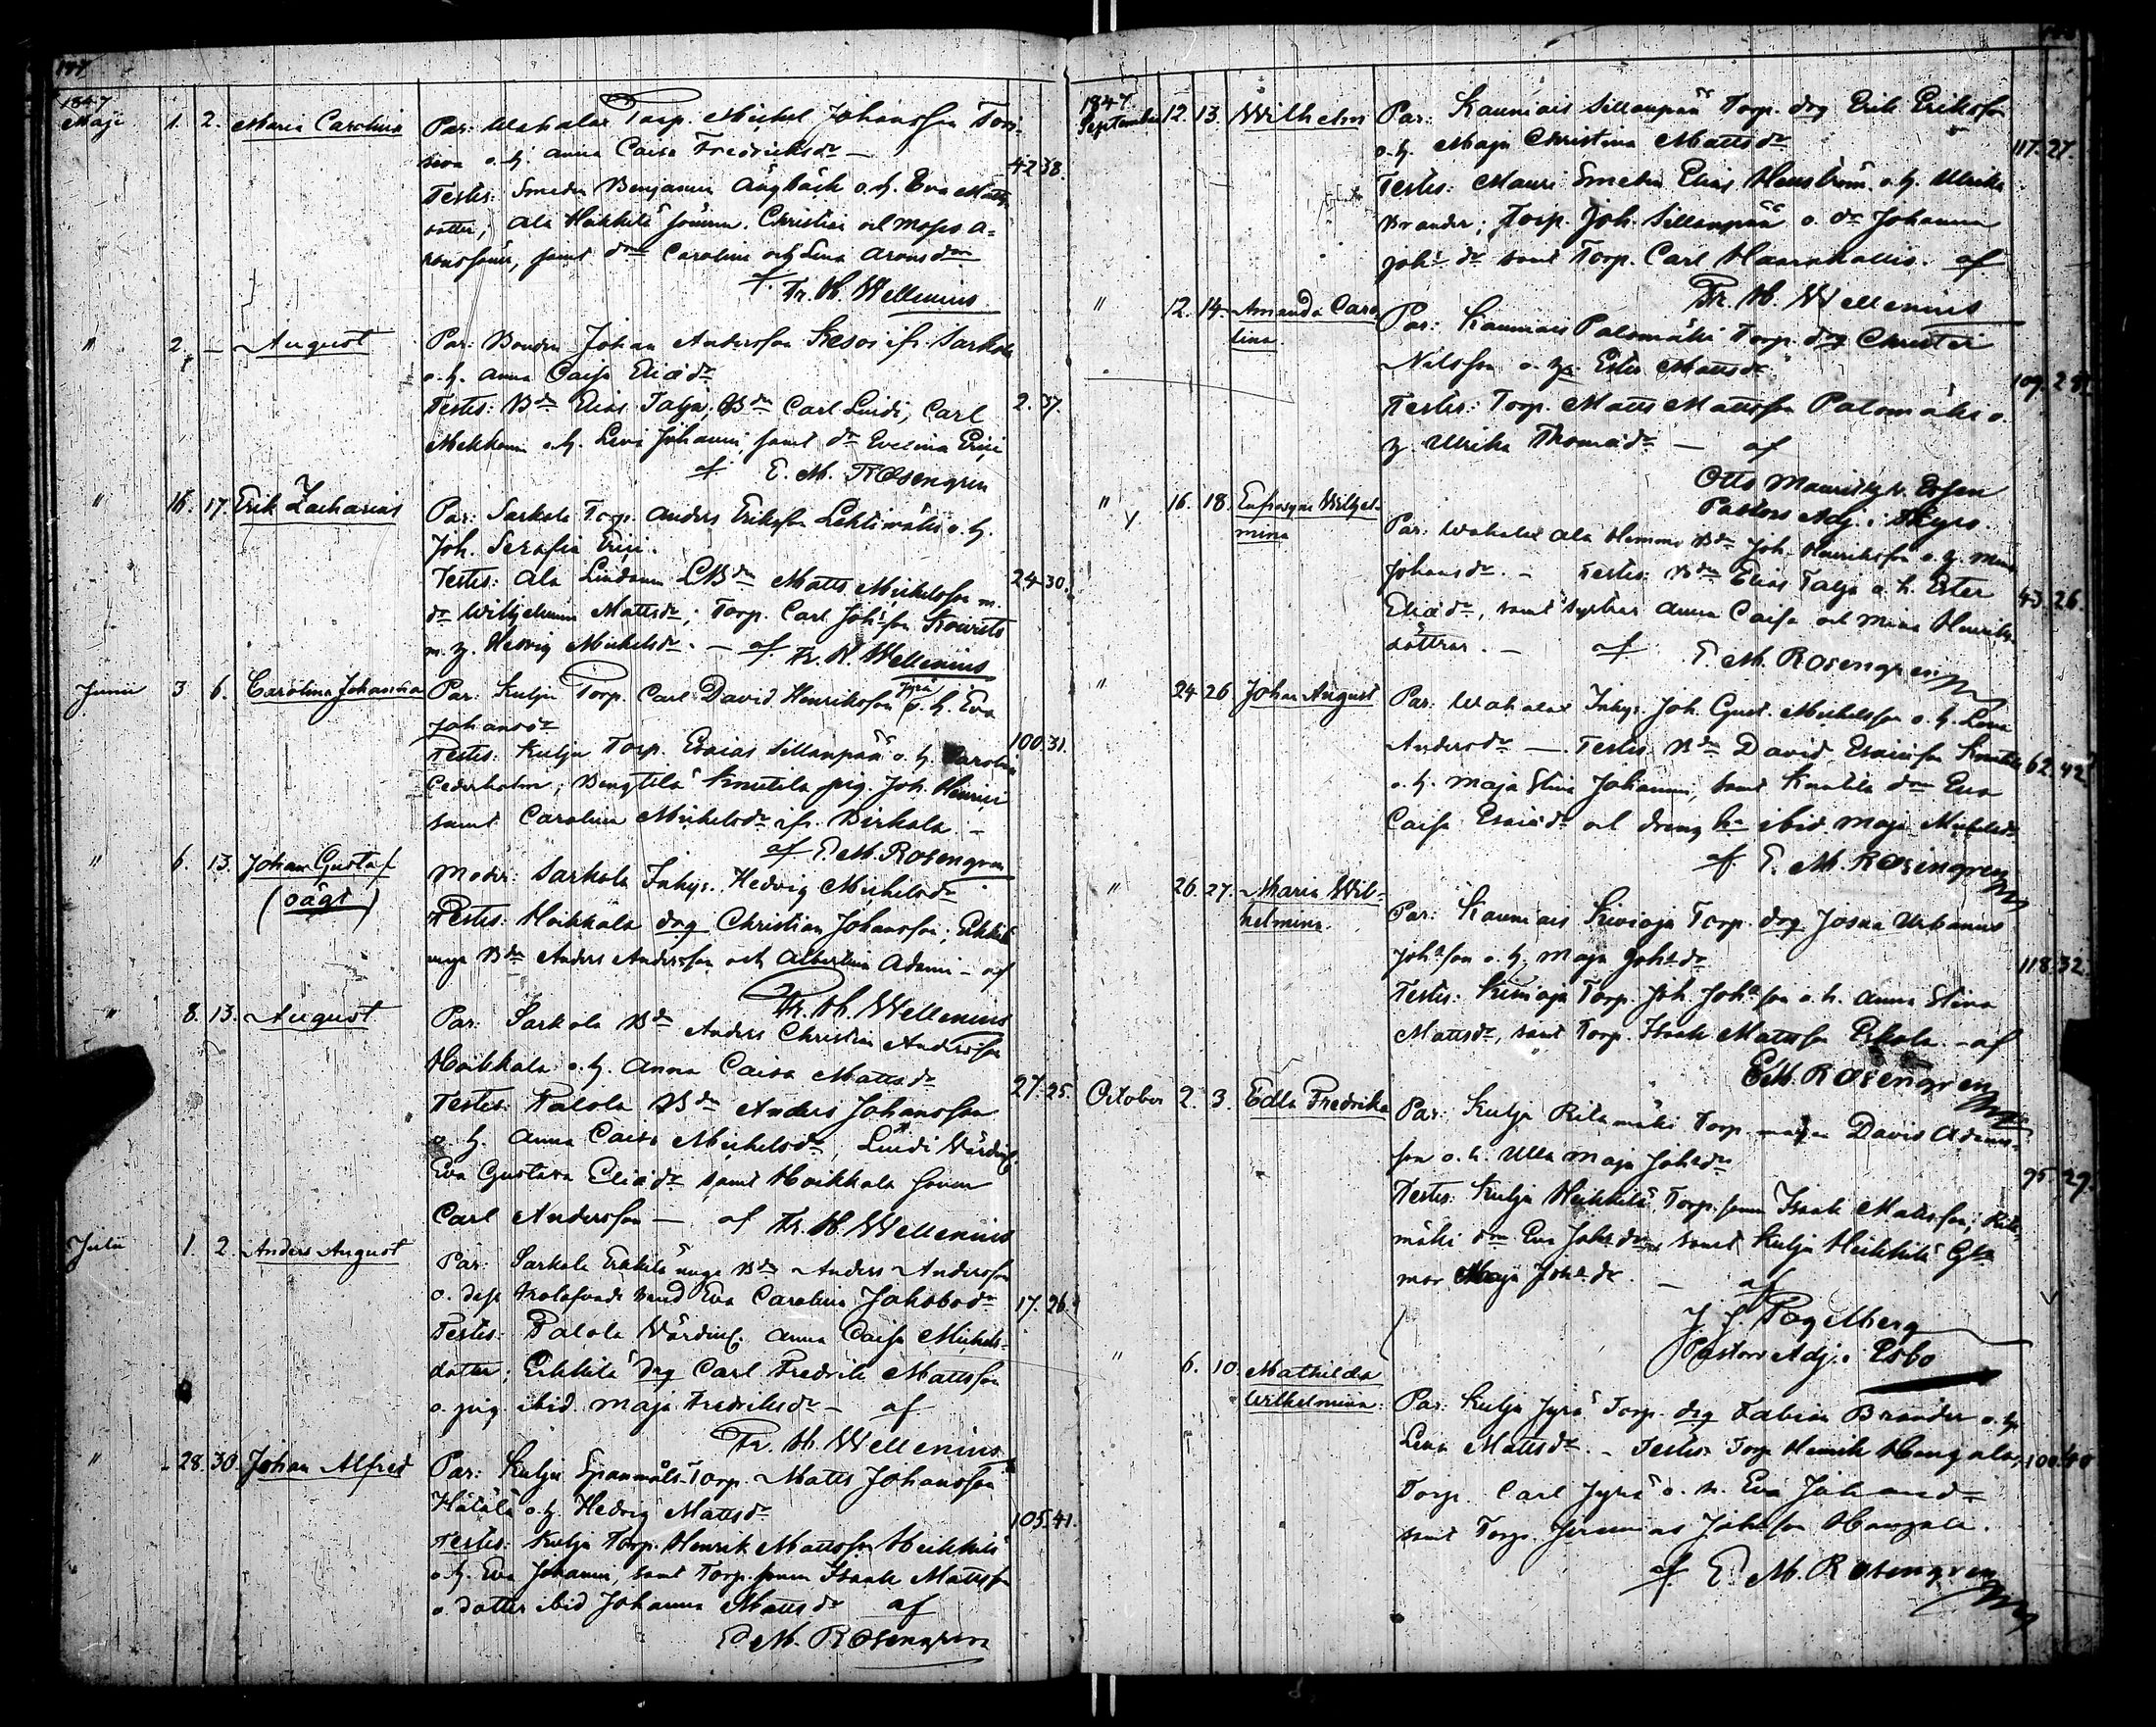 144
1847
Maji 1. 2. Maria Carolina Par: Wahalax Torp. Michel Johansson Tor-
siva o. h. Anna Caisa Fredriksdr — 42. 38.
Testes: Smeden Benjamin Ängbäck o. h. Eva Matts-
dotter, Ala Heikkilä sönerne Christian och Moses A-
ronssöner, samt drne Carolina och Lena Aronsdrar
af Fr. H. Wellenius
" 2. — August Par: Bonden Johan Andersson Kesos ifr. Sarkola
o. h. Anna Caisa Eliædr
Testes: Bdn Elias Talja, Bdn Carl Luidi, Carl 2. 37.
o. h. Lena Johanni, samt dr Evelina Erici
af E. M. Rosengren
" 16. 17. Erik Zacharias Par: Sarkola Torp. Anders Eriksson Lehtimäki o. h.
Joh. Serafia Erici.
Testes: Ala Bdn Matts Michelsson m. 24. 30.
dr Wilhelmina Mattsdr; Torp. Carl Joh:sson
m. h. Hedvig Michelsdr. — af Fr. H. Wellenius
Junii 3 6. Carolina Johanna Par: Kulju Torp. Carl David Henriksson Jyrä o. h. Eva
Johansdr 100. 31.
Testes: Kulju Torp. Esaias Sillanpää o. h. Carolina
Cederholm; Bengtilä Knutila pig. Joh. Henrici
samt Carolina Michelsdr ifr. Birkala. —
af E. M. Rosengren
" 6. 13. Johan Gustaf Moder: Sarkola Inhys. Hedvig Michelsdr
(oägt) Testes: Hoikkala drg Christian Johansson; Erkkilä
unga Bdn Anders Andersson och Albertina Adami — af
Fr. H. Wellenius
" 8. 13. August Par: Sarkola Bdn Anders Christian Andersson
Hoikkala o. h. Anna Caisa Mattsdr 27. 25.
Testes: Palola Bdn Anders Johansson
o. h. Anna Caisa Michelsdr, Luidi Värdinf.
Eva Gustava Eliædr samt Hoikkala sonen
Carl Andersson — af Fr. H. Wellenius
Julii 1. 2. Anders August Par: Sarkola Erkkilä unga Bdn Anders Andersson
o. dess trolofvade Eva Carolina Jakobsdr 17. 26.
Testes: Palola Värdinf. Anna Caisa Michels-
dotter; Erkkilä drg Carl Fredrik Mattsson
o. pig. ibid. Maja Fredriksdr — af
Fr. H. Wellenius
" 28. 30. Johan Alfred Par: Kulju Spanmåls Torp. Matts Johansson
Hätälä o. h. Hedvig Mattsdr 105. 41.
Testes: Kulju Torp. Henrik Mattsson Heikkilä
o. h. Eva Johanni, samt Torp. sonen Isaak Mattsson
o. dotter ibid Johanna Mattsdr af
E. M. Rosengren
1847.
September 12. 13. Wilhelm Par: Kauniais Sillanpää Torp. drg Erik Eriksson
o. h. Maja Christina Mattsdr 117. 27.
Testes: Mauri Smeden Elias Hellström o. h. Ulrika
Brander; Torp. Joh. Sillanpää o. dr Johanna
Joh:sdr samt Torp. Carl Haarahallis. af
Fr. H. Wellenius
" 12. 14. Amanda Caro- Par: Kauniais Palomäki Torp. drg Christer
lina. Nilsson o. h. Ester Mattsdr 109.
Testes: Torp. Matts Mattsson Palomäki o.
h. Ulrika Thomædr — af
Otto Mauritz v. Essen
Pastors Adj. i Kyro.
" 16. 18. Eufrosyne Wilhel- Par: Wahalax Ala Hemmo Bdn Joh. Henriksson o. h. Mina
mina Johansdr. — Testes: Bdn Elias Talja o. h. Ester 43. 26.
Eliædr, samt systrar Anna Caisa och Mina Henriks-
döttrar. — af E. M. Rosengren
" 24. 26. Johan August Par: Wahalax Inhys. Joh. Gust. Michelsson o. h. Lena
Andersdr — Testes Bdn David Esaiæsson Knutila 62. 42.
o. h. Maja Stina Johanni, samt Knutila drne Eva
Caisa Esaiædr och dreng hu ibid. Maja Michelsdr
af E. M. Rosengren
" 26. 27. Maria Wil- Par: Kauniais Kivioja Torp. drg Josua Urbanus
helmina. Joh:sson o. h. Maja Joh:sdr 118. 32.
Testes: Kivioja Torp. Joh. Joh:sson o. h. Anna Stina
Mattsdr, samt Torp. Isaak Mattsson Eskola. — af
E. M. Rosengren
October 2. 3. Edla Fredrika Par: Kulju Ritamäki Torp. David Adams-
son o. h. Ulla Maja Joh:sdr 95. 29.
Testes: Kulju Heikkilä Torp. sonen Isaak Mattsson; Rita-
mäki drne Eva Joh:sdr samt Kulju Heikkilä
mor Maja Joh:sdr. — af
J. F. Fogelberg
Pastors Adj. i Esbo
" 6. 10. Mathilda Par: Kulju Jyrä Torp. drg Fabian Brander o. h.
Wilhelmina. Lena Mattsdr. — Testes: Torp. Henrik Hangala; 100. 40
Torp. Carl Jyrä o. h. Eva Johansdr
samt Torp. Jeremias Joh:sson Hangala.
af E. M. Rosengren